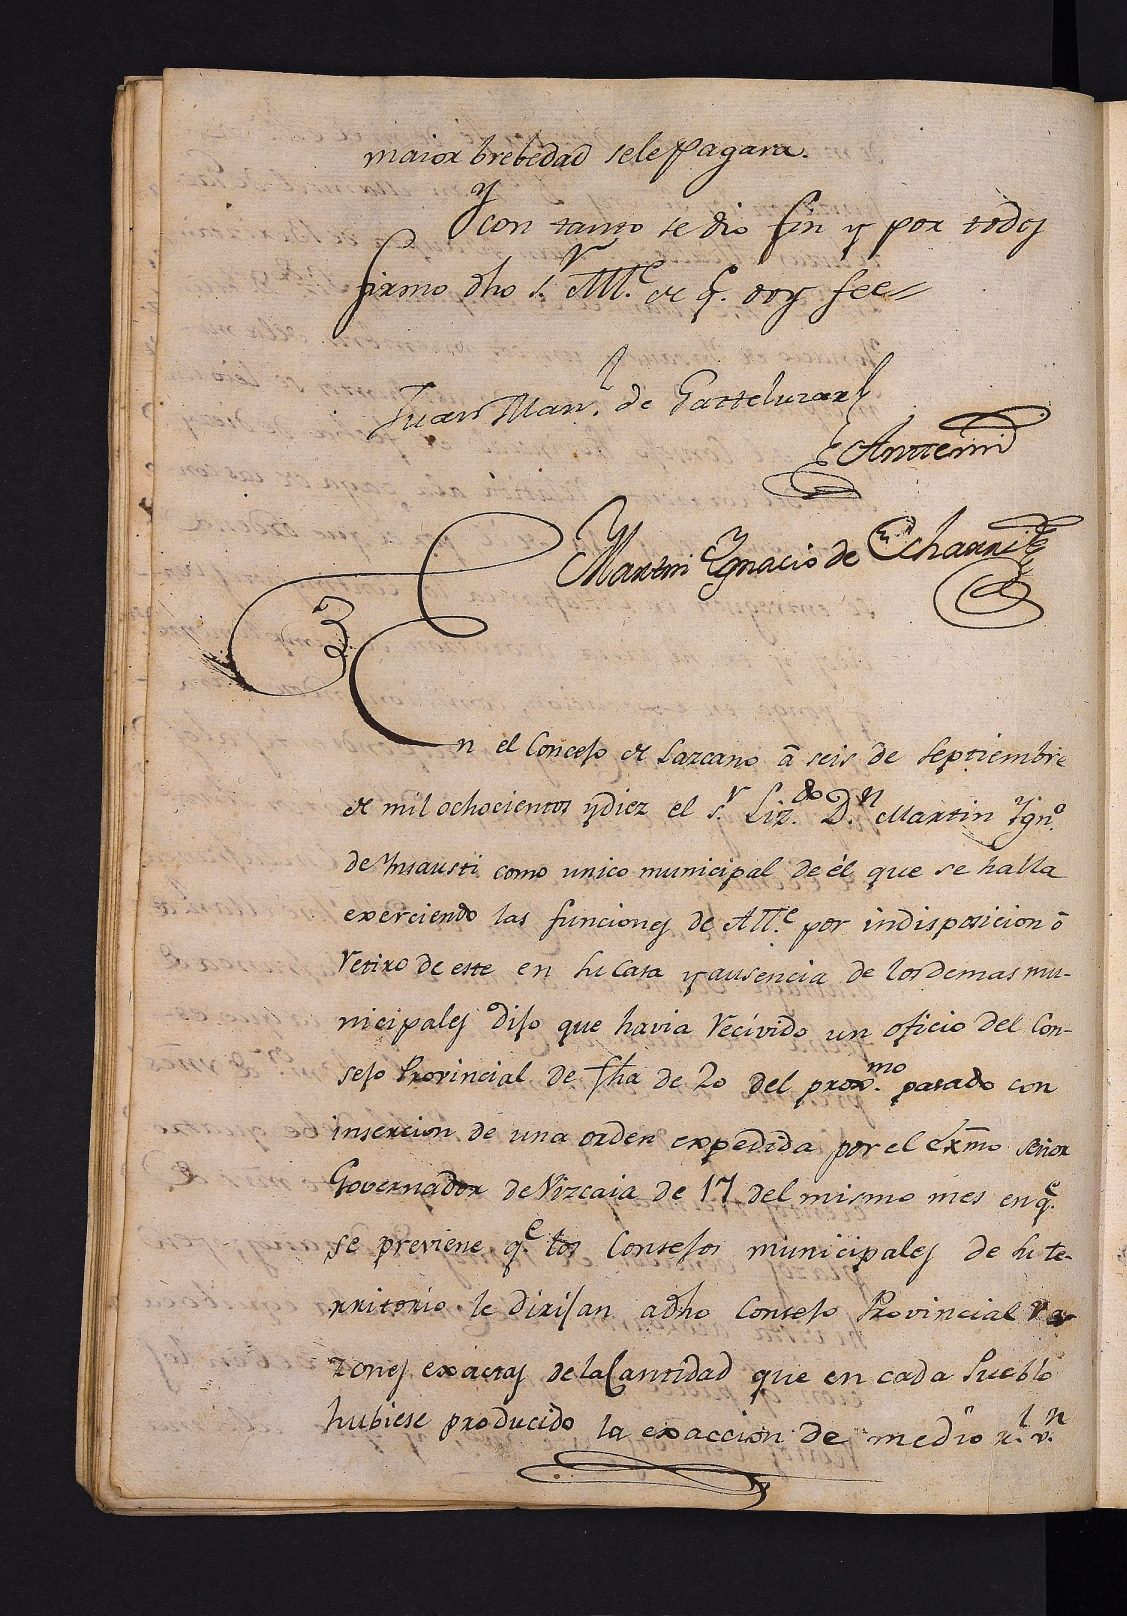 maior brebedad sele Pagara.
Y con tanto se dio fin y por todos
firmo dho s.r Alle. de q.e doy fee
Juan Man.l de Gaztelurar
Antemi
Martin Ygnacio de Echarri
3
En el Concejo de Lazcano â seis de septiembre
de mil ochocientos y diez el s.r Liz.do D.n Martin Ygn.o
de Ynsausti como unico municipal de él que se halla
exerciendo las funciones de Alle. por indisposicion ô
retiro de este en su Casa y ausencia de los demas mu-
nicipales dijo que havia recivido un oficio del Con-
sejo Provincial de fha de 20 del prox.mo pasado con
insercion de una orden expedida por el Exmo señor
Governador de Vizcaia de 17 del mismo mes en q.e
se previene q.e los Consejos municipales de su te-
rritorio le dirijan a dho Consejo Provincial ra
zones exactas de la Cantidad que en cada Pueblo
hubiese producido la exaccion de medio r.l v.n